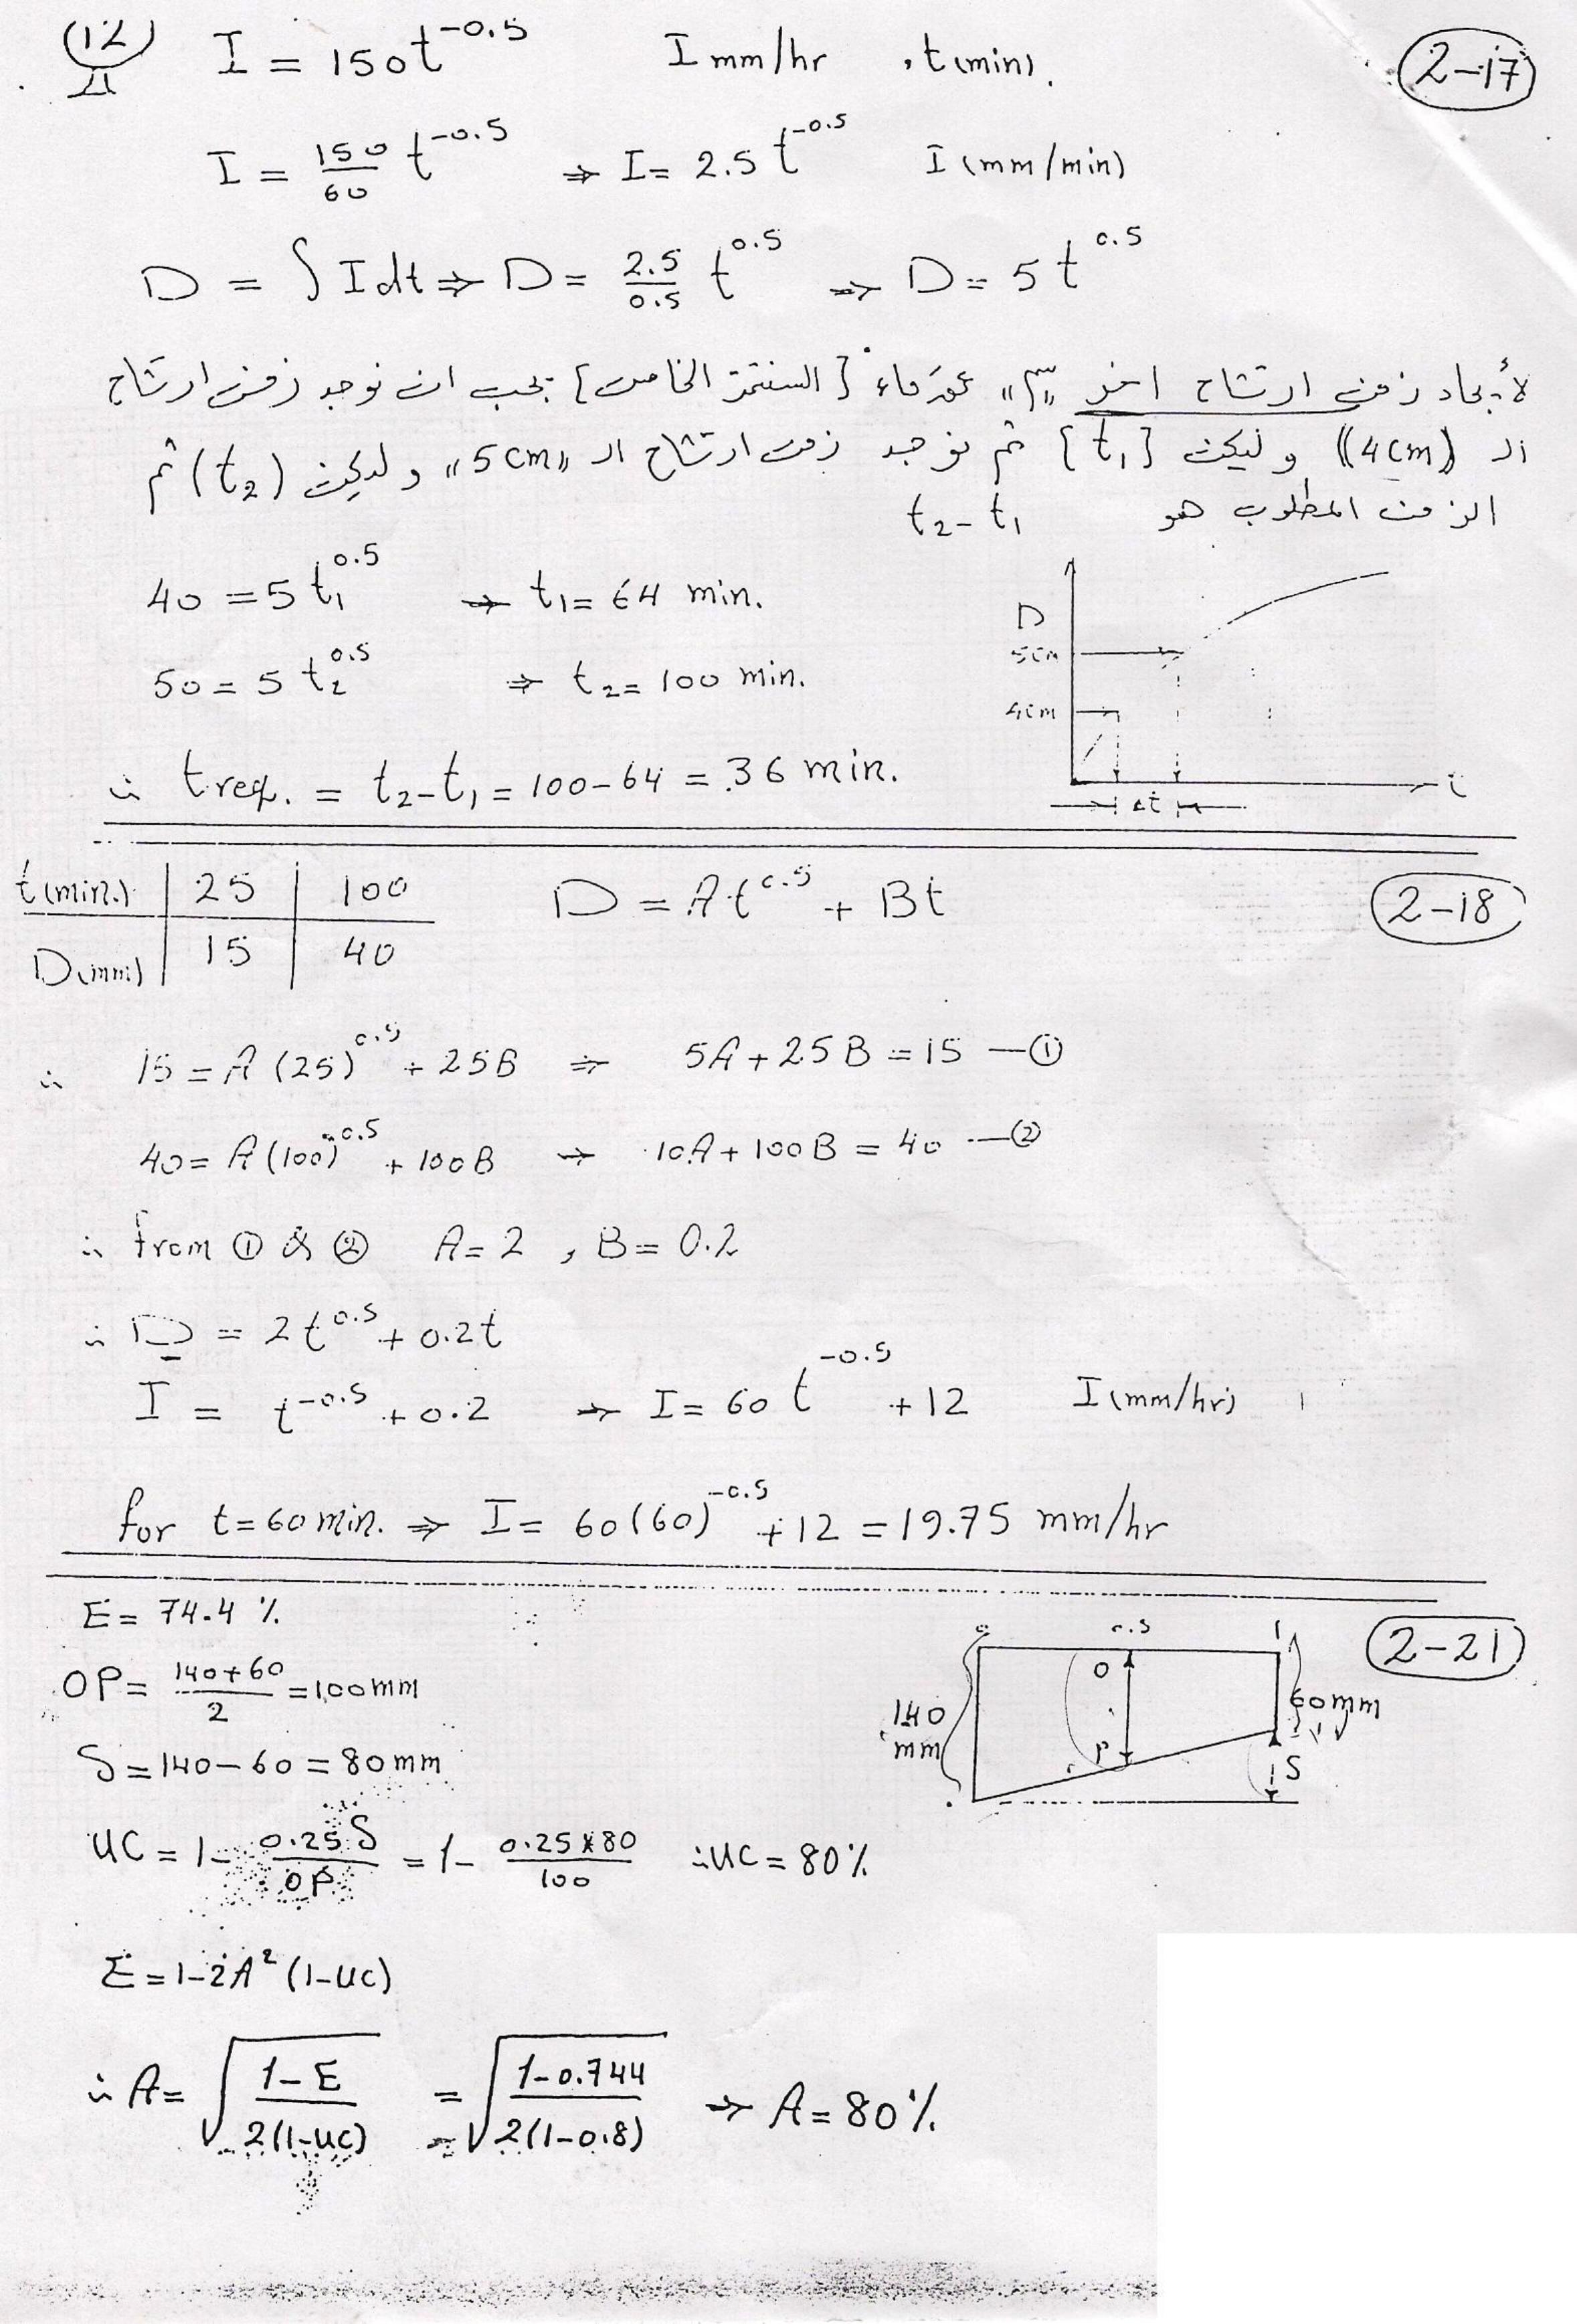 (12)
I = 150 t^-0.5 I mm/hr , t (min). (2-17)
I = 150/60 t^-0.5 ⇒ I = 2.5 t^-0.5 I (mm/min)
D = ∫ I dt ⇒ D = 2.5/0.5 t^0.5 ⇒ D = 5 t^0.5
لأيجاد زمن ارتشاح اخر "سم" عمق ماء [السنتمتر الخامس] يجب ان نوجد زمن ارتشاح
الـ (4cm) وليكن [t1] ثم نوجد زمن ارتشاح الـ "5cm" وليكن (t2) ثم
الزمن المطلوب هو t2 - t1
40 = 5 t1^0.5 ⇒ t1 = 64 min.
50 = 5 t2^0.5 ⇒ t2 = 100 min.
∴ t req. = t2 - t1 = 100 - 64 = 36 min.
D
5cm
4cm
t
Δt
t (min.) | 25 | 100 D = A t^0.5 + Bt (2-18)
D (mm) | 15 | 40
∴ 15 = A (25)^0.5 + 25B ⇒ 5A + 25B = 15 —①
40 = A (100)^0.5 + 100B ⇒ 10A + 100B = 40 —②
∴ from ① & ② A = 2 , B = 0.2
∴ D = 2 t^0.5 + 0.2t
I = t^-0.5 + 0.2 ⇒ I = 60 t^-0.5 + 12 I (mm/hr)
for t = 60 min. ⇒ I = 60 (60)^-0.5 + 12 = 19.75 mm/hr
E = 74.4 % (2-21)
OP = 140+60/2 = 100 mm
S = 140 - 60 = 80 mm
UC = 1 - 0.25 S/OP = 1 - 0.25*80/100 ∴ UC = 80 %
E = 1 - 2A² (1-UC)
∴ A = √(1-E/2(1-UC)) = √(1-0.744/2(1-0.8)) ⇒ A = 80 %
0 0.5 1
O
140 mm
60 mm
P
S